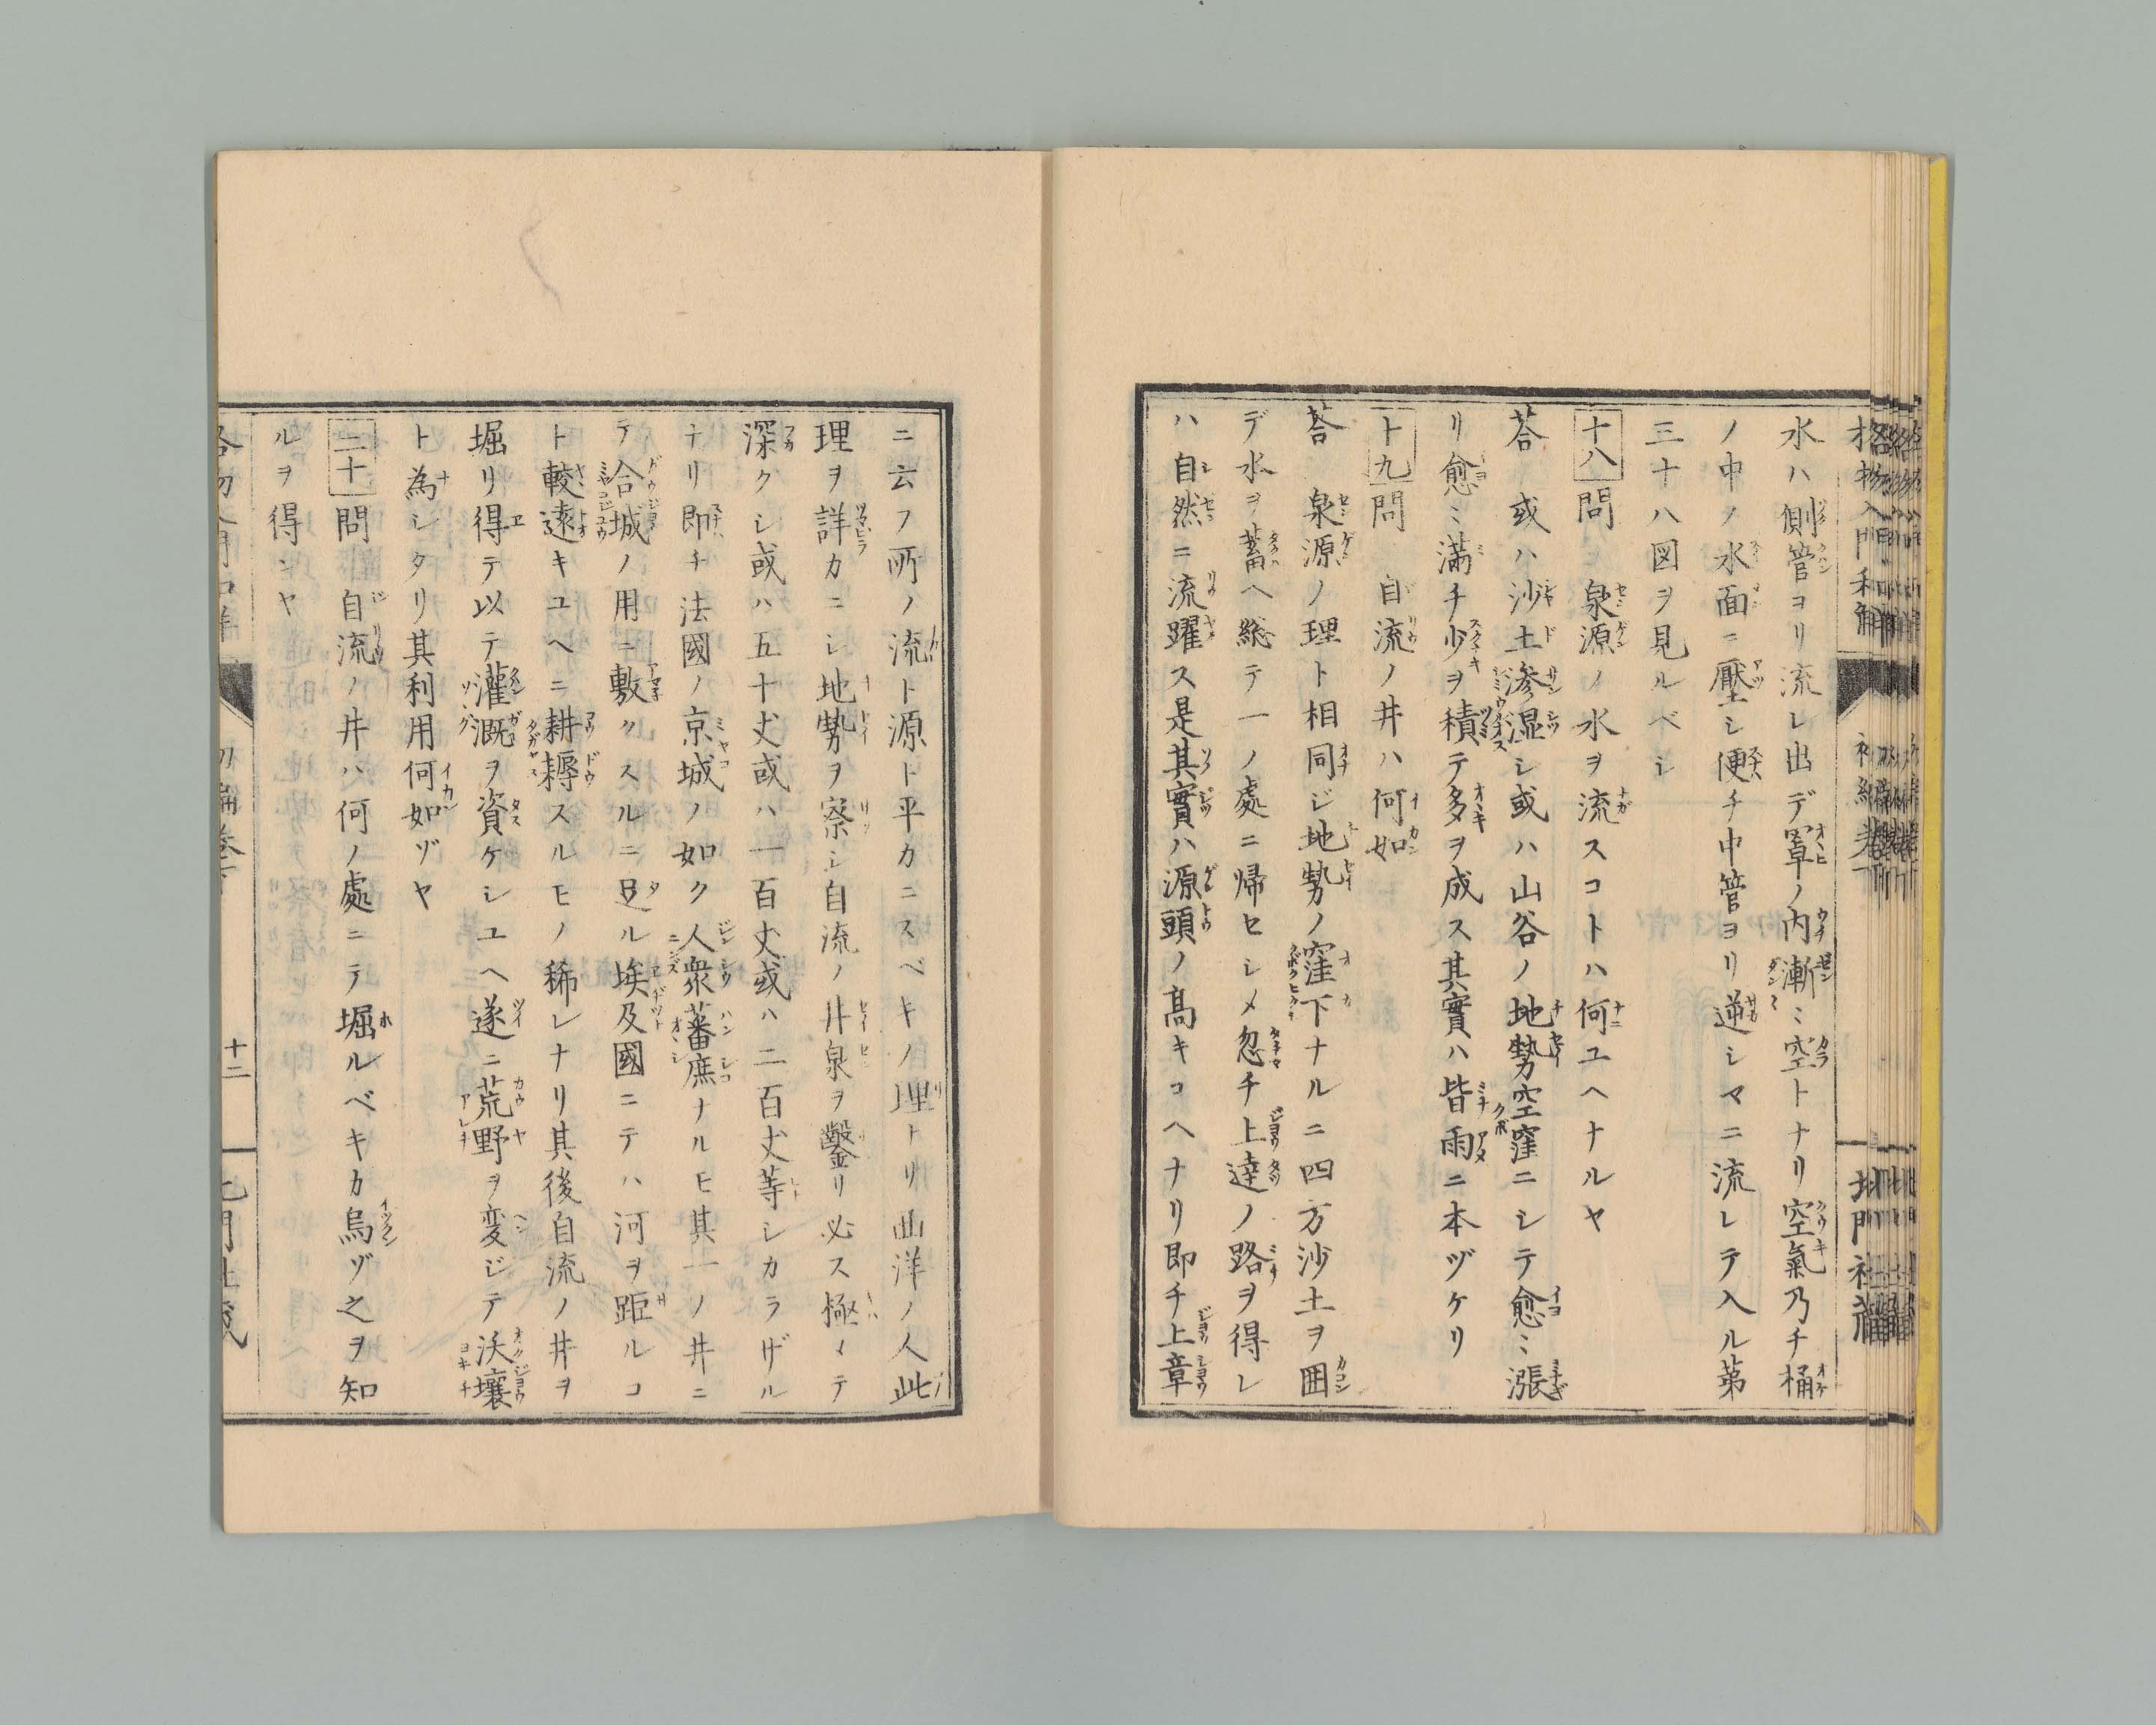 格物入門和解
初編巻下
北門社蔵
水ハ側管ヨリ流レ出デ罩ノ内漸〻空トナリ空氣乃チ桶
ノ中ノ水面ニ壓シ便チ中管ヨリ逆シマニ流レテ入ル第
三十八図ヲ見ルベシ
十八問 泉源ノ水ヲ流スコトハ何ユヘナルヤ
荅 或ハ沙土滲湿シ或ハ山谷ノ地勢空窪ニシテ愈〻漲
リ愈〻満チ少ヲ積テ多ヲ成ス其實ハ皆雨ニ本ヅケリ
十九問 自流ノ井ハ何如
荅 泉源ノ理ト相同ジ地勢ノ窪下ナルニ四方沙土ヲ囲
デ水ヲ蓄ヘ総テ一ノ處ニ帰セシメ忽チ上達ノ路ヲ得レ
ハ自然ニ流躍ス是其實ハ源頭ノ髙キユヘナリ即チ上章
ニ云フ所ノ流ト源ト平カニスベキノ理ナリ西洋ノ人此
理ヲ詳カニシ地勢ヲ察シ自流ノ井泉ヲ鑿リ必ス極メテ
深クシ或ハ五十丈或ハ一百丈或ハ二百丈等シカラザル
ナリ即チ法國ノ京城ノ如ク人衆蕃庶ナルモ其一ノ井ニ
テ合城ノ用ニ敷クスルニ足ル埃及國ニテハ河ヲ距ルコ
ト較遠キユヘニ耕耨スルモノ稀レナリ其後自流ノ井ヲ
堀リ得テ以テ灌漑ヲ資ケシユヘ遂ニ荒野ヲ変ジテ沃壤
ト為シタリ其利用何如ヅヤ
二十問 自流ノ井ハ何ノ處ニテ堀ルベキカ烏ヅ之ヲ知
ルヲ得ンヤ
格物入門和解
初編巻下
十二
北門社蔵